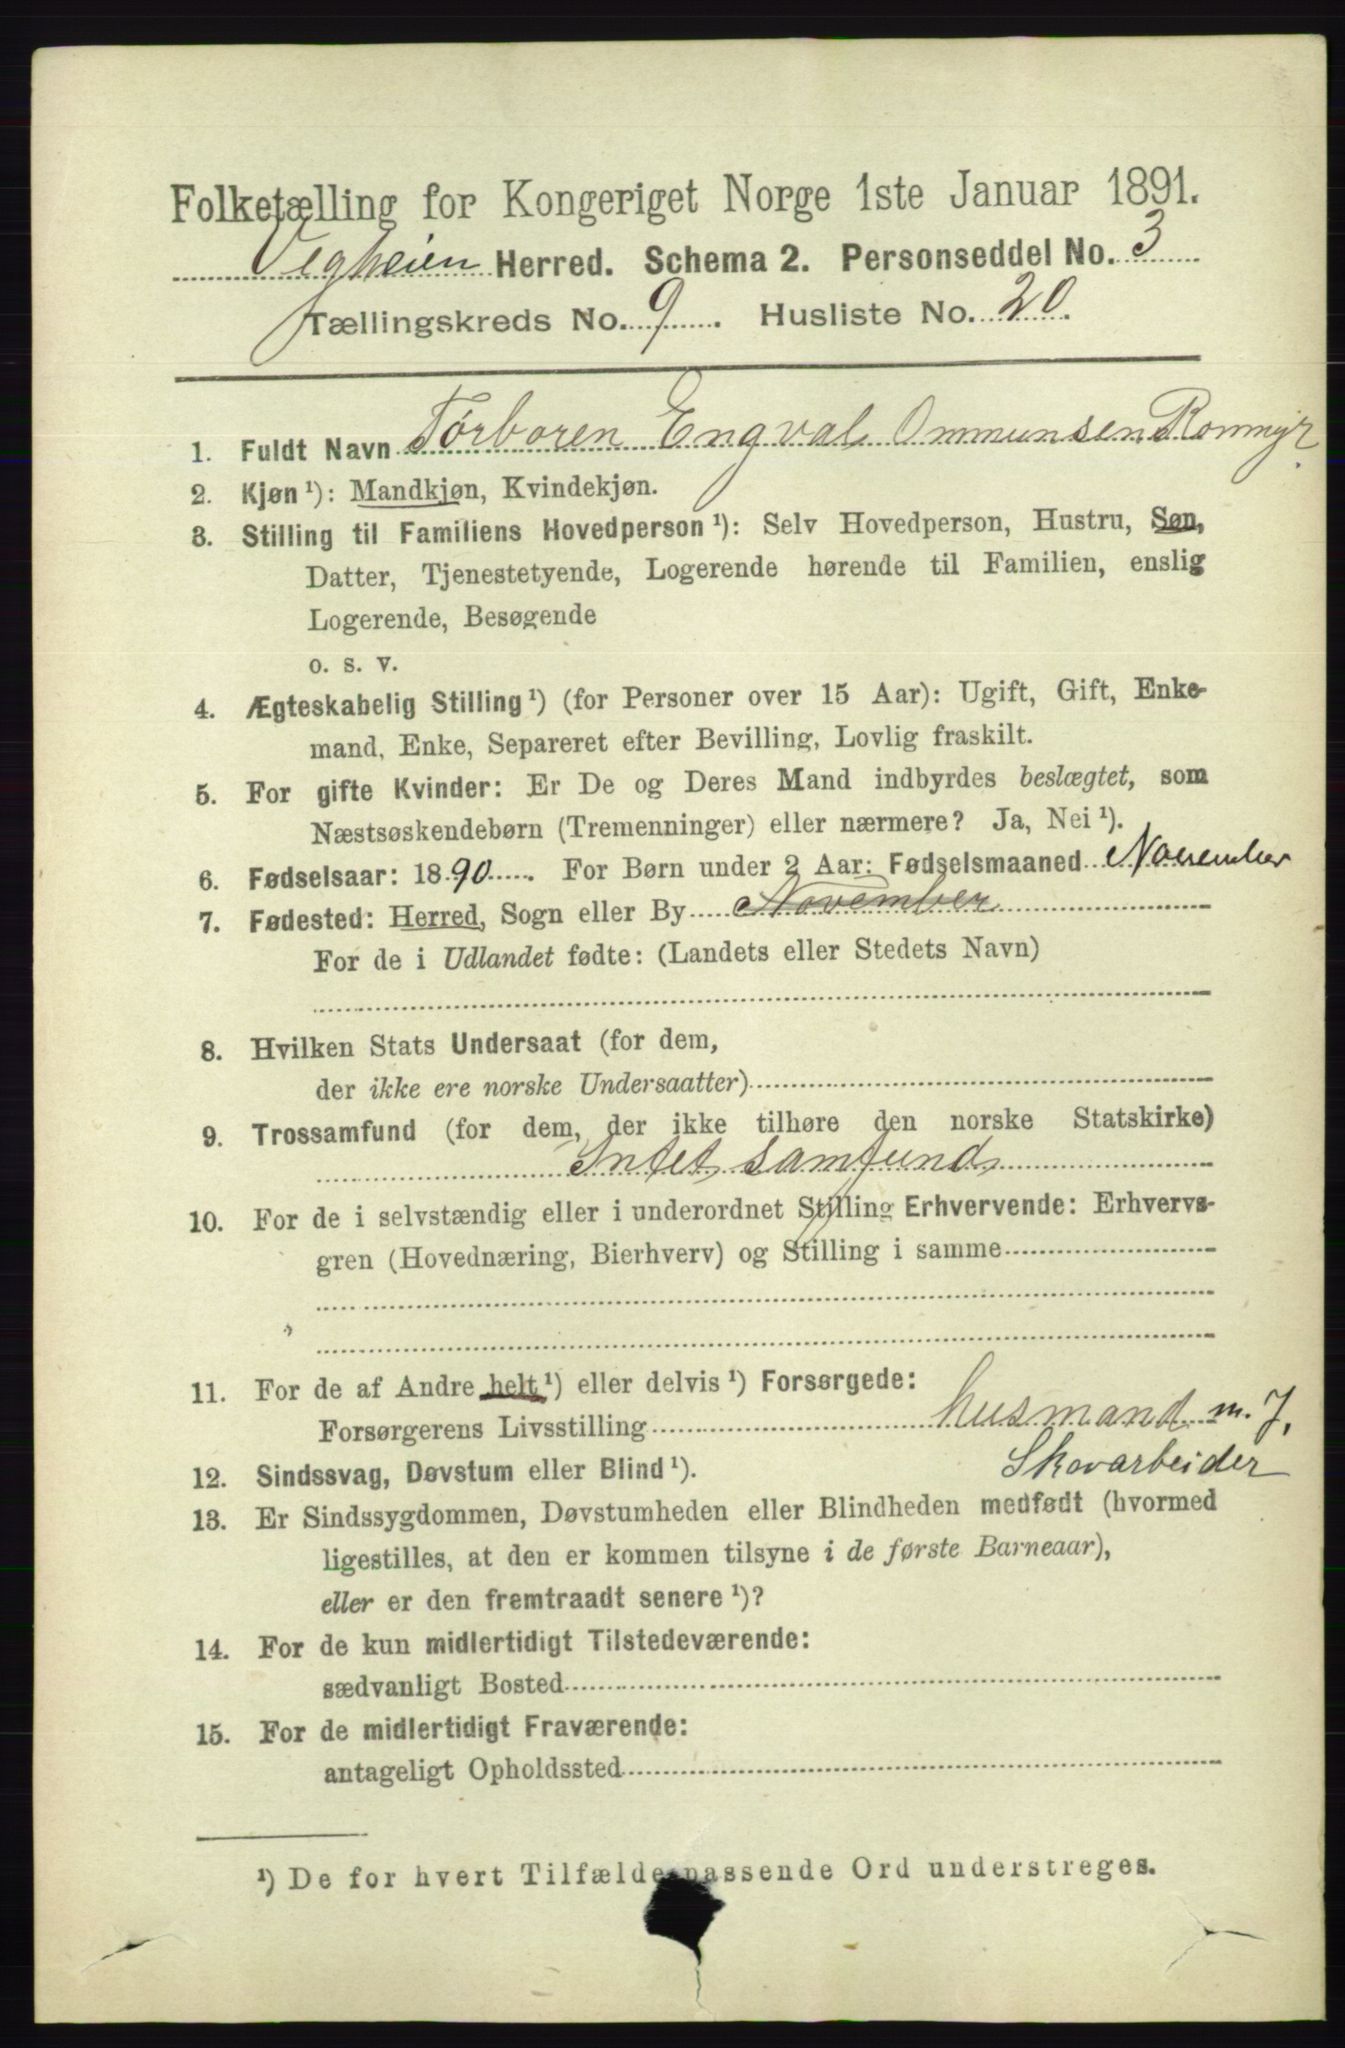 Folketælling for Kongeriget Norge 1ste Januar 1891.
Vegheien Herred. Schema 2. Personseddel No. 3
Tællingskreds No. 9. Husliste No. 20.
1. Fuldt Navn Tørboren Engval Ommunsen Rommyr
2. Kjøn ¹): Mandkjøn, Kvindekjøn.
3. Stilling til Familiens Hovedperson ¹): Selv Hovedperson, Hustru, Søn,
Datter, Tjenestetyende, Logerende hørende til Familien, enslig
Logerende, Besøgende
o. s. v.
4. Ægteskabelig Stilling ¹) (for Personer over 15 Aar): Ugift, Gift, Enke-
mand, Enke, Separeret efter Bevilling, Lovlig fraskilt.
5. For gifte Kvinder: Er De og Deres Mand indbyrdes beslægtet, som
Næstsøskendebørn (Tremenninger) eller nærmere? Ja, Nei ¹).
6. Fødselsaar: 1890. For Børn under 2 Aar: Fødselsmaaned November
7. Fødested: Herred, Sogn eller By November
For de i Udlandet fødte: (Landets eller Stedets Navn)
8. Hvilken Stats Undersaat (for dem,
der ikke ere norske Undersaatter)
9. Trossamfund (for dem, der ikke tilhøre den norske Statskirke)
Intet samfund
10. For de i selvstændig eller i underordnet Stilling Erhvervende: Erhvervs-
gren (Hovednæring, Bierhverv) og Stilling i samme
11. For de af Andre helt ¹) eller delvis ¹) Forsørgede:
Forsørgerens Livsstilling husmand m. J,
Skovarbeider
12. Sindssvag, Døvstum eller Blind ¹).
13. Er Sindssygdommen, Døvstumheden eller Blindheden medfødt (hvormed
ligestilles, at den er kommen tilsyne i de første Barneaar),
eller er den fremtraadt senere ¹)?
14. For de kun midlertidigt Tilstedeværende:
sædvanligt Bosted
15. For de midlertidigt Fraværende:
antageligt Opholdssted
¹) De for hvert Tilfælde passende Ord understreges.